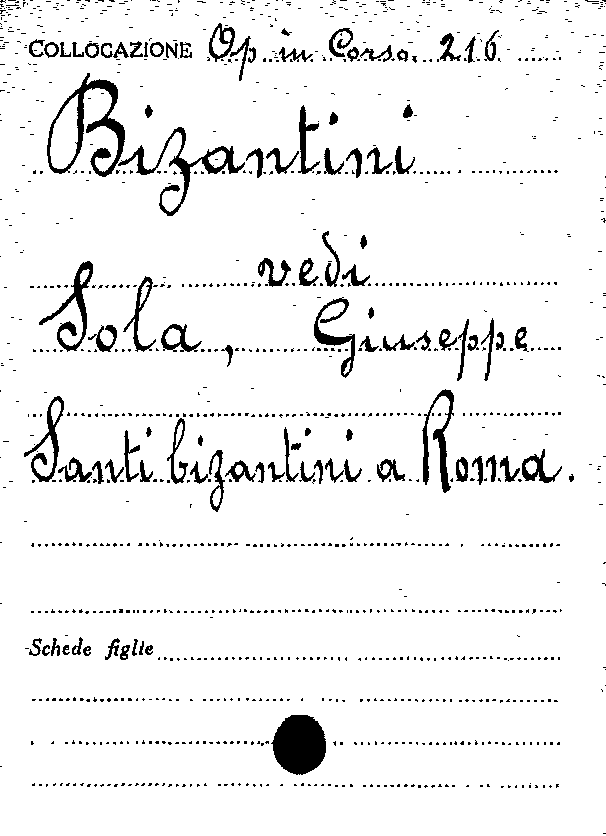 COLLOCAZIONE Op. in Corso. 216
Bizantini
vedi
Sola, Giuseppe
Santi bizantini a Roma.
Schede figlie